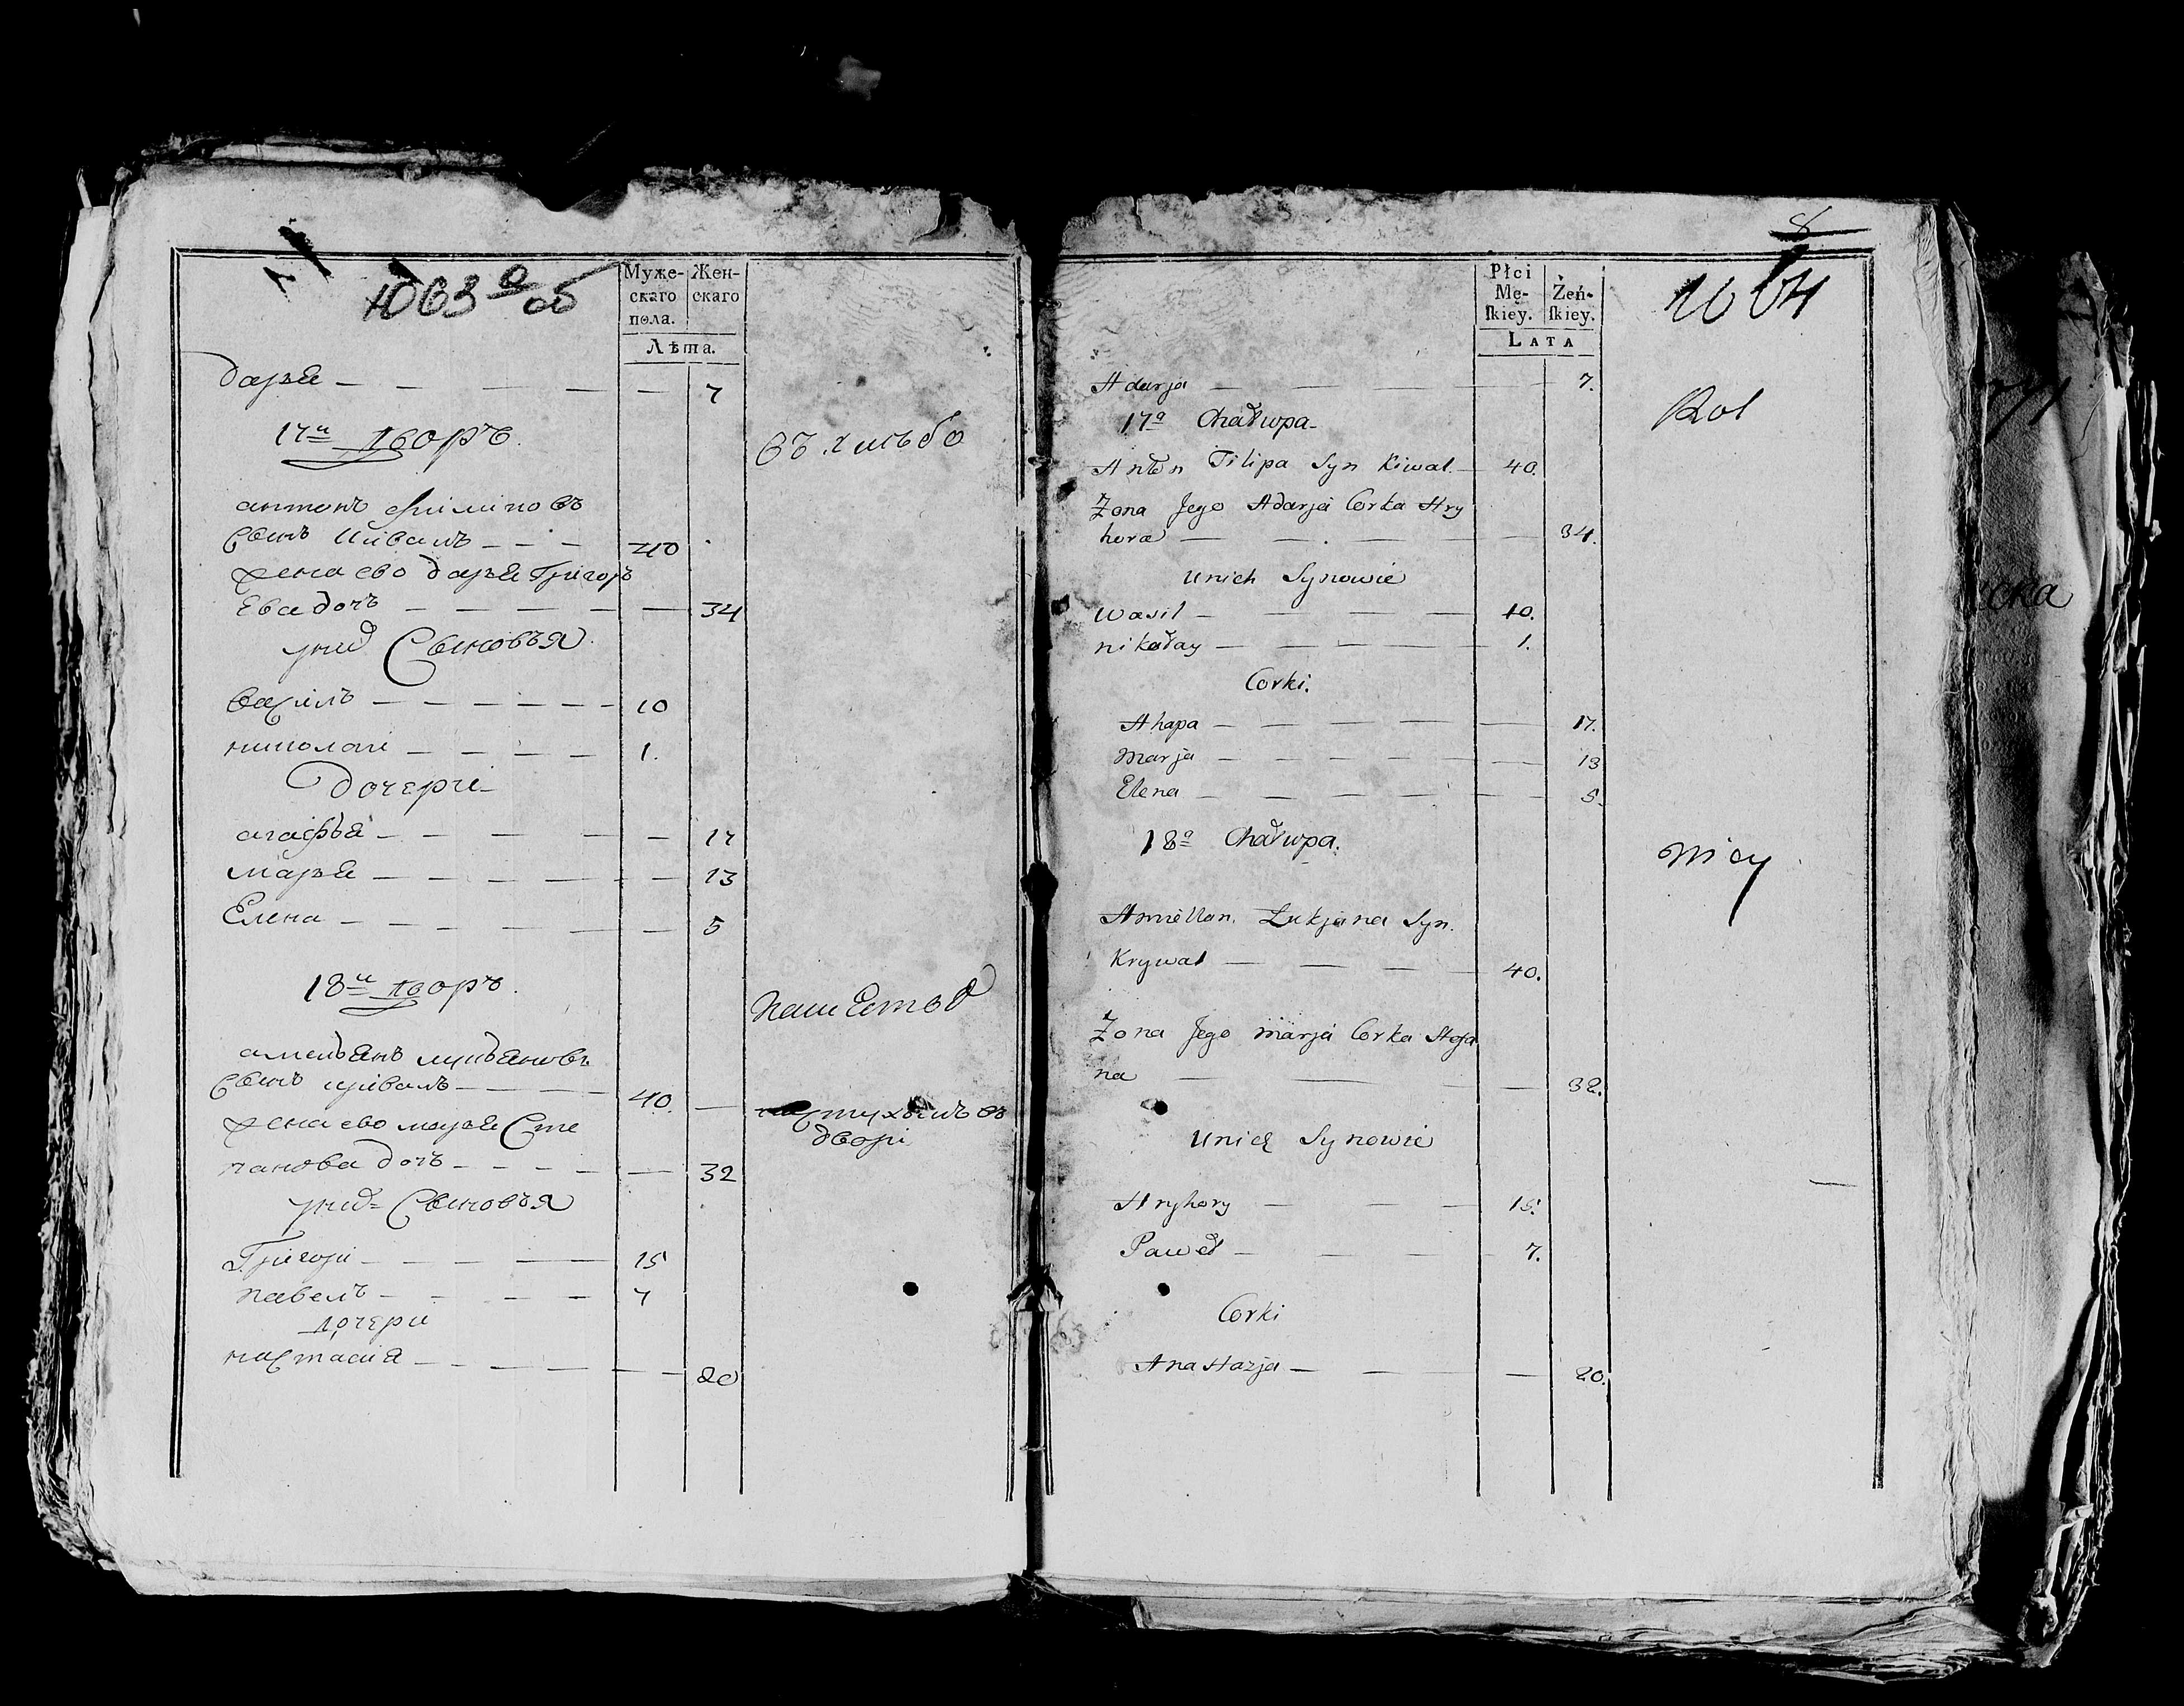 1063 а об
Муже-
скаго
пола.
Жен-
скаго
Лѣта.
дарья — 7
17й дворъ
антонъ филиповъ
сынъ кивалъ — 40
жена ево дарья Григорь
ева дочъ — 34
у них Сыновья
василъ — 10
николаи — 1.
дочери
агафья — 17
марья — 13
Елена — 5
18й дворъ
амельянъ лукьяновъ
сынъ кривалъ — 40.
жена ево марья Сте
панова дочъ — 32
у них Сыновья
Григори — 15
павелъ — 7
дочери
настасия — 20
дворі
8
1064
Płci
Mę-
ſkiey.
Żeń-
ſkiey.
LATA
Adarja — 7.
17a Chałupa
Rol
Anton Filipa Syn Kiwal — 40.
Zona Jego Adarja Corka Hry
hora — 34.
unich Synowie
Wasil — 10.
nikołay — 1.
Corki.
Ahapa — 17.
Marja — 13
Elena — 5.
18a Chałupa.
Amiellan Lukjana Syn.
Krywal — 40.
Zona Jego marja Corka Stefa
na — 32.
unich Synowie
Hryhory — 15.
Paweł — 7.
Corki
Anastazja — 20.